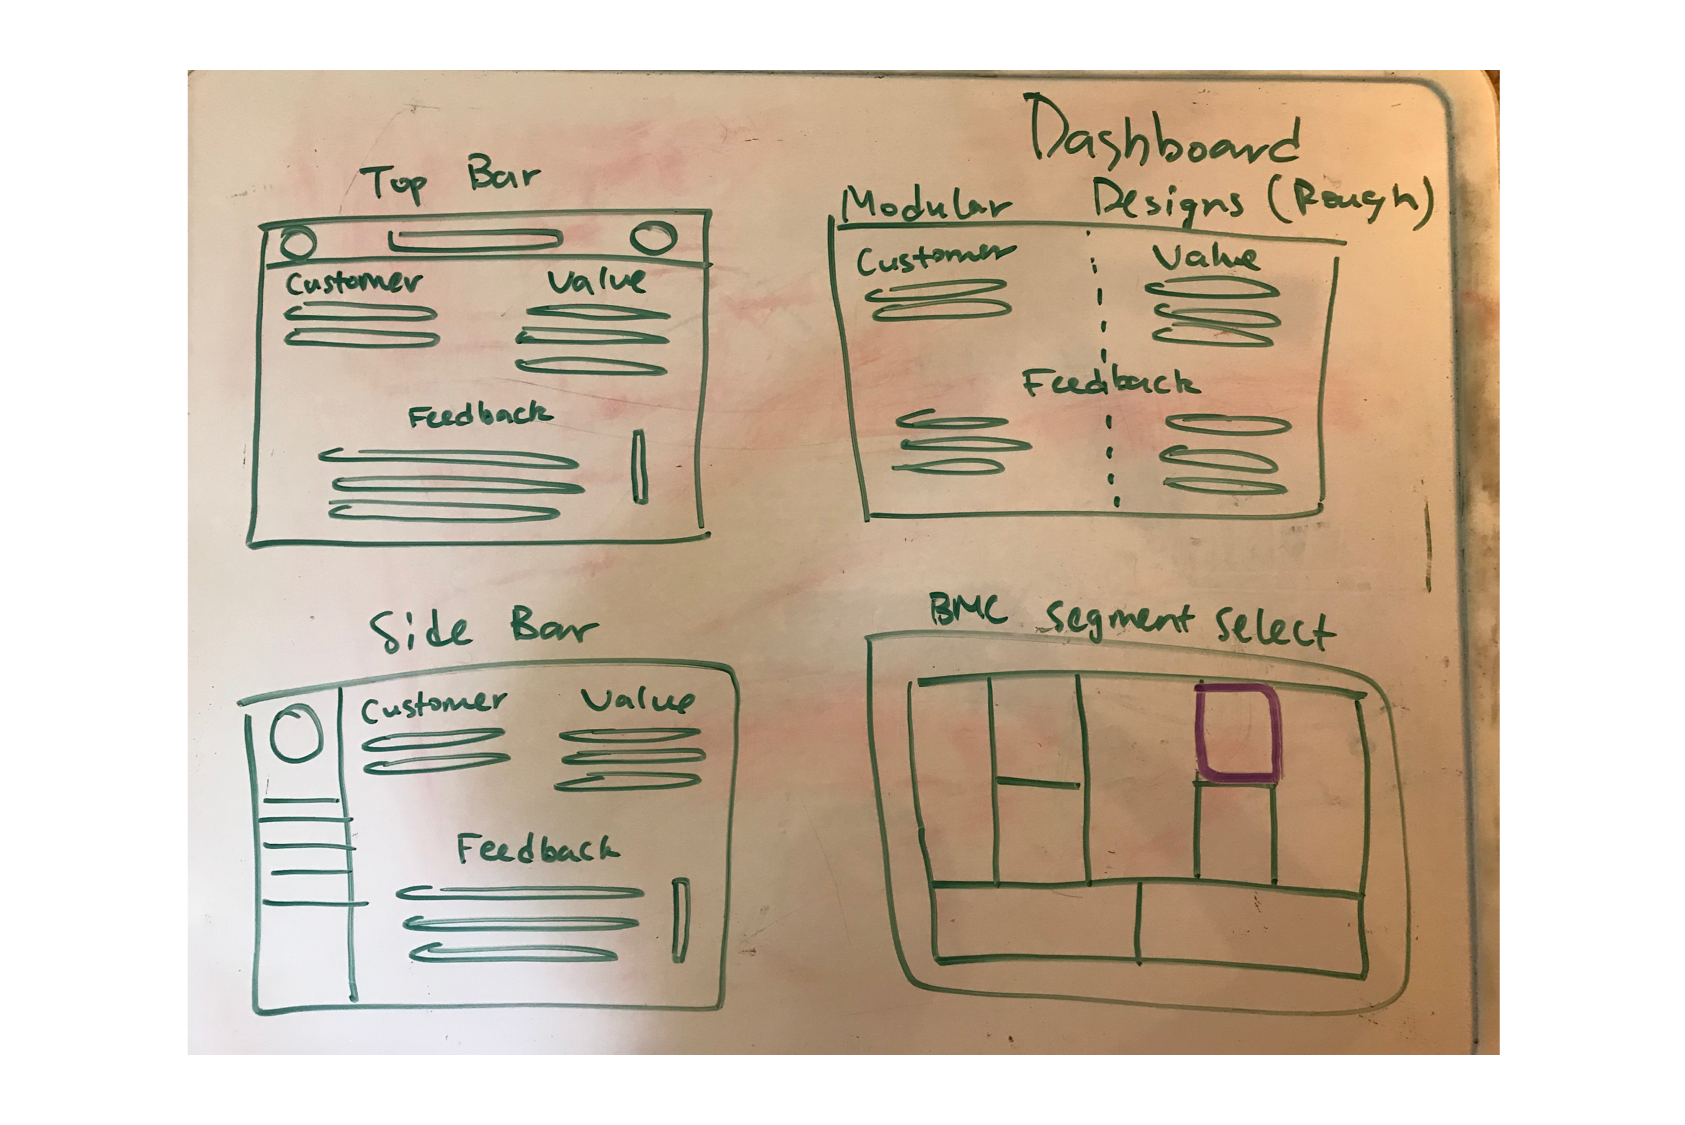 Dashboard
Designs (Rough)
Top Bar
Customer Value
Feedback
Modular
Customer Value
Feedback
Side Bar
Customer Value
Feedback
BMC Segment Select